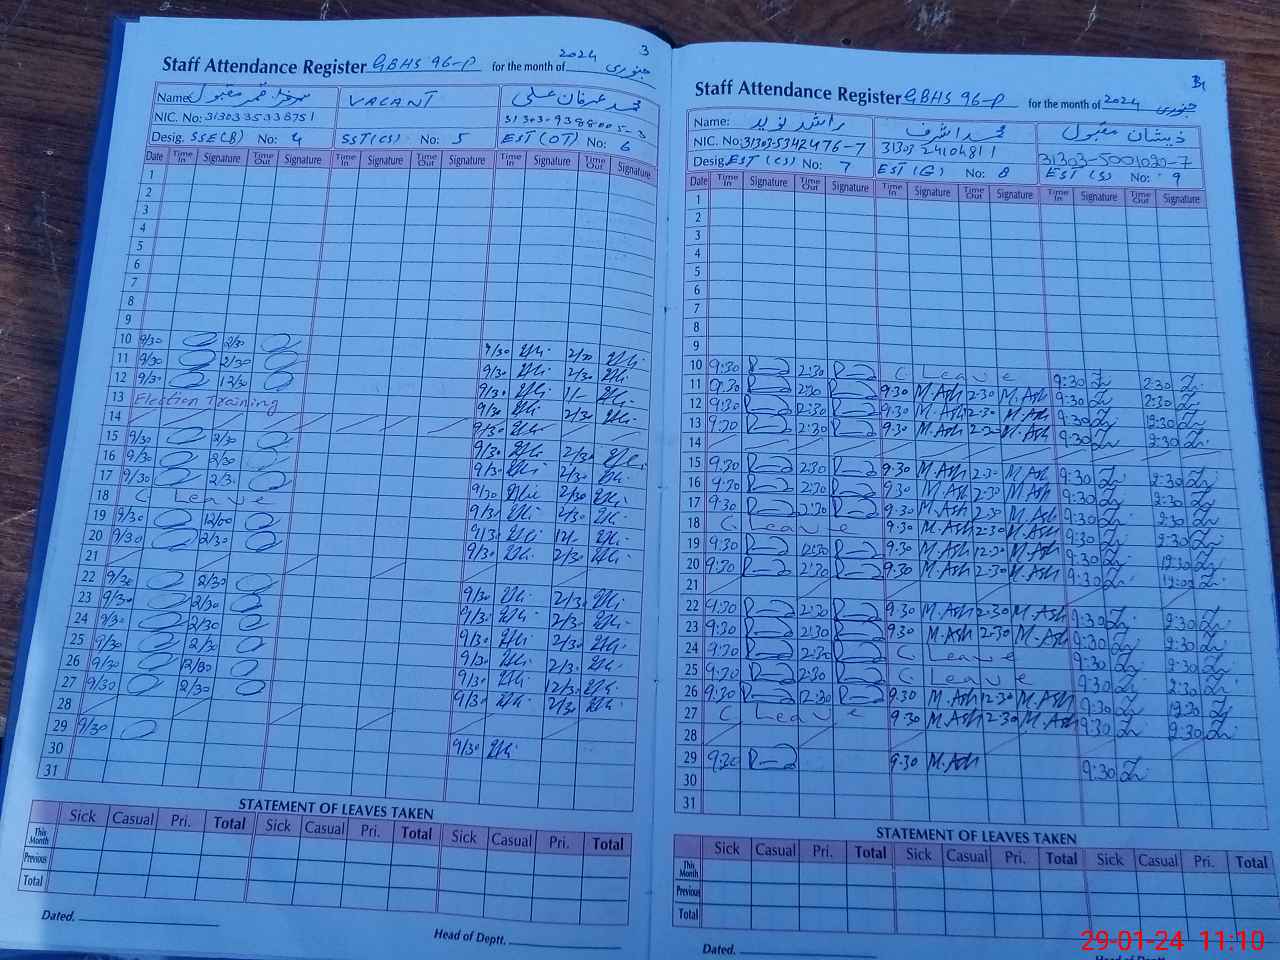 3
Staff Attendance Register GBHS 96-P for the month of 2024 جنوری
Name: سرفراز قمر مقبول VACANT محمد عرفان علی
NIC. No: 3130335338751 31303-9388005-3
Desig. SSE(B) No: 4 SST(CS) No: 5 EST(OT) No: 6
Date Time In Signature Time Out Signature Time In Signature Time Out Signature Time In Signature Time Out Signature
1
2
3
4
5
6
7
8
9
10 9/30 2/30 9/30 2/30
11 9/30 2/30 9/30 2/30
12 9/30 12/30 9/30 1/-
13 Election Training 9/30 2/30
14 9/30
15 9/30 2/30 9/30 2/30
16 9/30 2/30 9/30 2/30
17 9/30 2/30 9/30 2/30
18 C Leave 9/30 2/30
19 9/30 12/00 9/30 12/-
20 9/30 2/30 9/30 2/30
21
22 9/30 2/30 9/30 2/30
23 9/30 2/30 9/30 2/30
24 9/30 2/30 9/30 2/30
25 9/30 2/30 9/30 2/30
26 9/30 12/30 9/30 12/30
27 9/30 2/30 9/30 2/30
28
29 9/30 9/30
30
31
STATEMENT OF LEAVES TAKEN
Sick Casual Pri. Total Sick Casual Pri. Total Sick Casual Pri. Total
This Month
Previous
Total
Dated.
Head of Deptt.
Staff Attendance Register GBHS 96-P for the month of 2024 جنوری
Name: راشد نوید محمد اشرف ذیشان مقبول
NIC. No: 31303-5342476-7 31303 2410481 1 31303-5001020-7
Desig. EST (CS) No: 7 EST(G) No: 8 EST(S) No: 9
Date Time In Signature Time Out Signature Time In Signature Time Out Signature Time In Signature Time Out Signature
1
2
3
4
5
6
7
8
9
10 9:30 2:30 C Leave 9:30 2:30
11 9:30 2:30 9.30 M.Ash 2.30 M.Ash 9:30 2:30
12 9:30 12:30 9.30 M.Ash 2.30 M.Ash 9:30 12:30
13 9:30 2:30 9.30 M.Ash 2.30 M.Ash 9:30 2:30
14
15 9:30 2:30 9.30 M.Ash 2.30 M.Ash 9:30 2:30
16 9:30 2:30 9.30 M.Ash 2.30 M.Ash 9:30 2:30
17 9:30 2:30 9.30 M.Ash 2.30 M.Ash 9:30 2:30
18 C Leave 9.30 M.Ash 2.30 M.Ash 9:30 2:30
19 9:30 12:30 9.30 M.Ash 12.30 M.Ash 9:30 12:30
20 9:30 2:30 9.30 M.Ash 2.30 M.Ash 9:30 12:00
21
22 9:30 2:30 9.30 M.Ash 2.30 M.Ash 9:30 2:30
23 9:30 2:30 9.30 M.Ash 2.30 M.Ash 9:30 2:30
24 9:30 2:30 C Leave 9:30 2:30
25 9:30 2:30 C Leave 9:30 2:30
26 9:30 12:30 9.30 M.Ash 12.30 M.Ash 9:30 12:30
27 C Leave 9.30 M.Ash 2.30 M.Ash 9:30 2:30
28
29 9:30 9.30 M.Ash 9:30
30
31
STATEMENT OF LEAVES TAKEN
Sick Casual Pri. Total Sick Casual Pri. Total Sick Casual Pri. Total
This Month
Previous
Total
Dated.
29-01-24 11:10